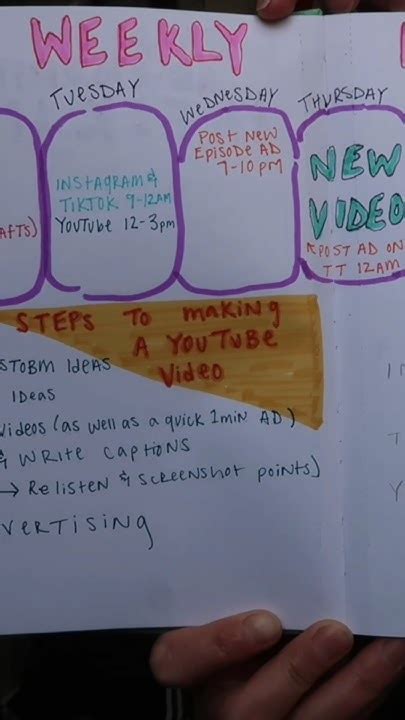 WEEKLY
TUESDAY
WEDNESDAY
THURSDAY
AFTS)
INSTAGRAM &
TIKTOK 9-12AM
YOUTUBE 12-3pm
POST NEW
EPISODE AD
7-10 pm
NEW
VIDEO
POST AD ON
TT 12AM
STEPS TO making
A YOUTUBE
Video
STOBM IDEAS
IDEAS
Videos (as well as a quick 1min AD)
& WRITE CAPTIONS
→ Relisten & screenshot points)
VERTISING